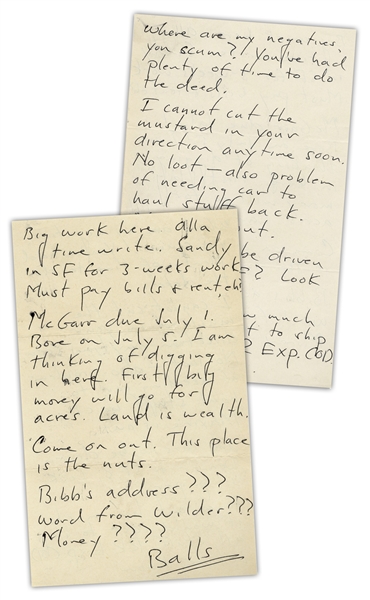 where are my negatives,
you scum? You've had
plenty of time to do
the deed.
I cannot cut the
mustard in your
direction anytime soon.
No loot — also problem
of needing car to
haul stuff back.
be driven
? Look
much
to ship
? Exp. COD.
Big work here alla
time write. Sandy
in SF for 3-weeks work.
Must pay bills & rent, eh?
McGarr due July 1.
Bone on July 5. I am
thinking of digging
in here. First big
money will go for
acres. Land is wealth.
Come on out. This place
is the nuts.
Bibb's address ???
word from Wilder???
Money ????
Balls